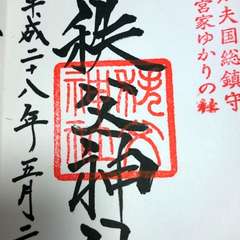 夫国総鎮守
宮家ゆかりの社
秩父神社
秩父神社
平成二十八年五月二